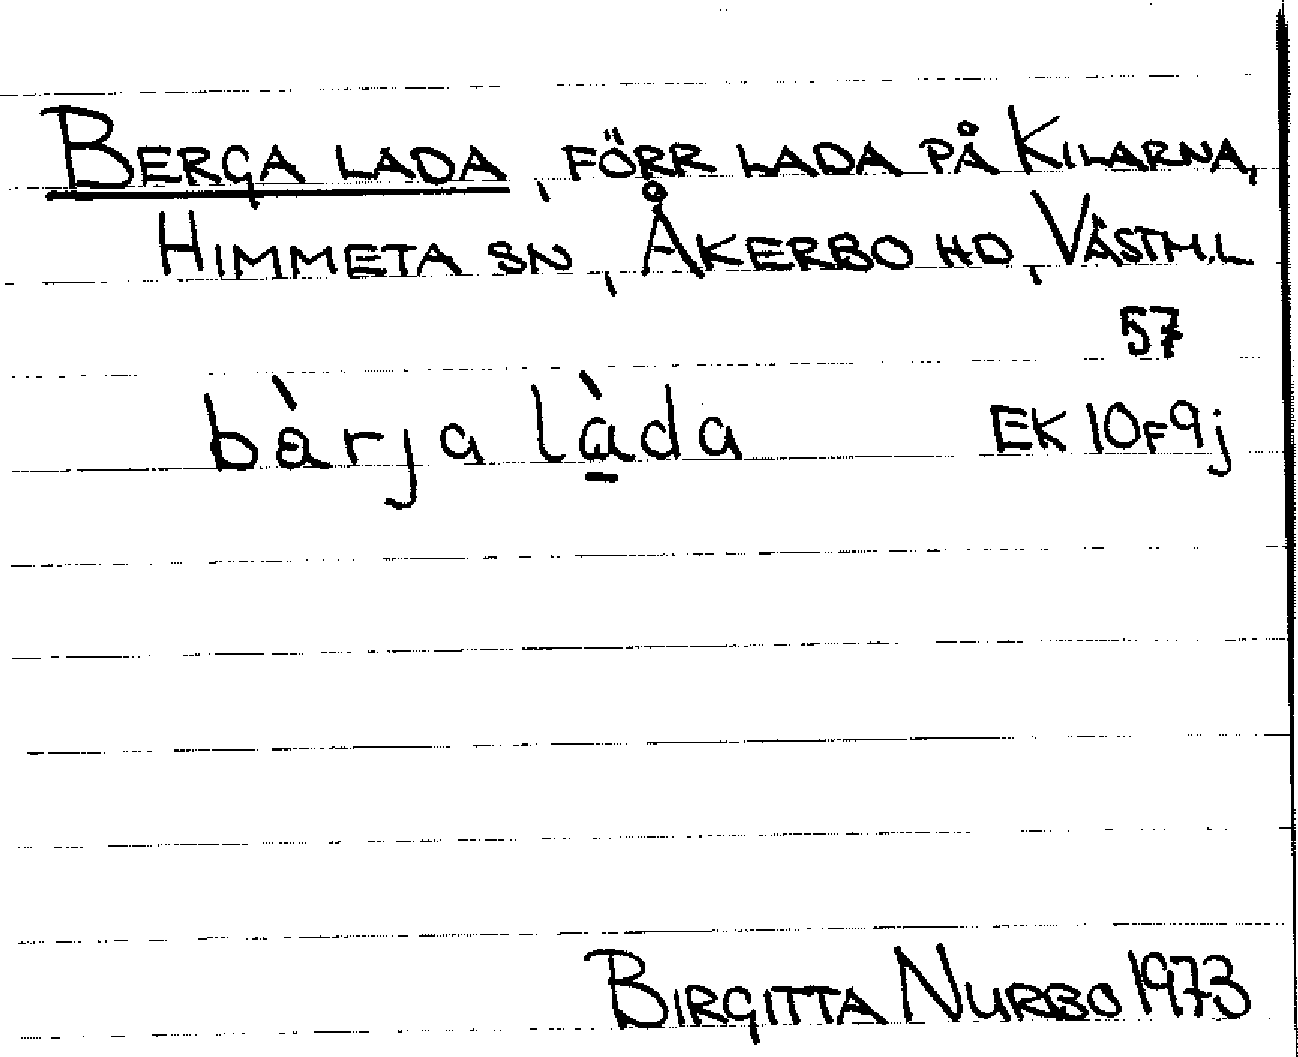 BERGA LADA, FÖRR LADA PÅ KILARNA,
HIMMETA SN, ÅKERBO HD, VÄSTM.L
57
bàrja là̱da EK 10F9j
BIRGITTA NURBO 1973